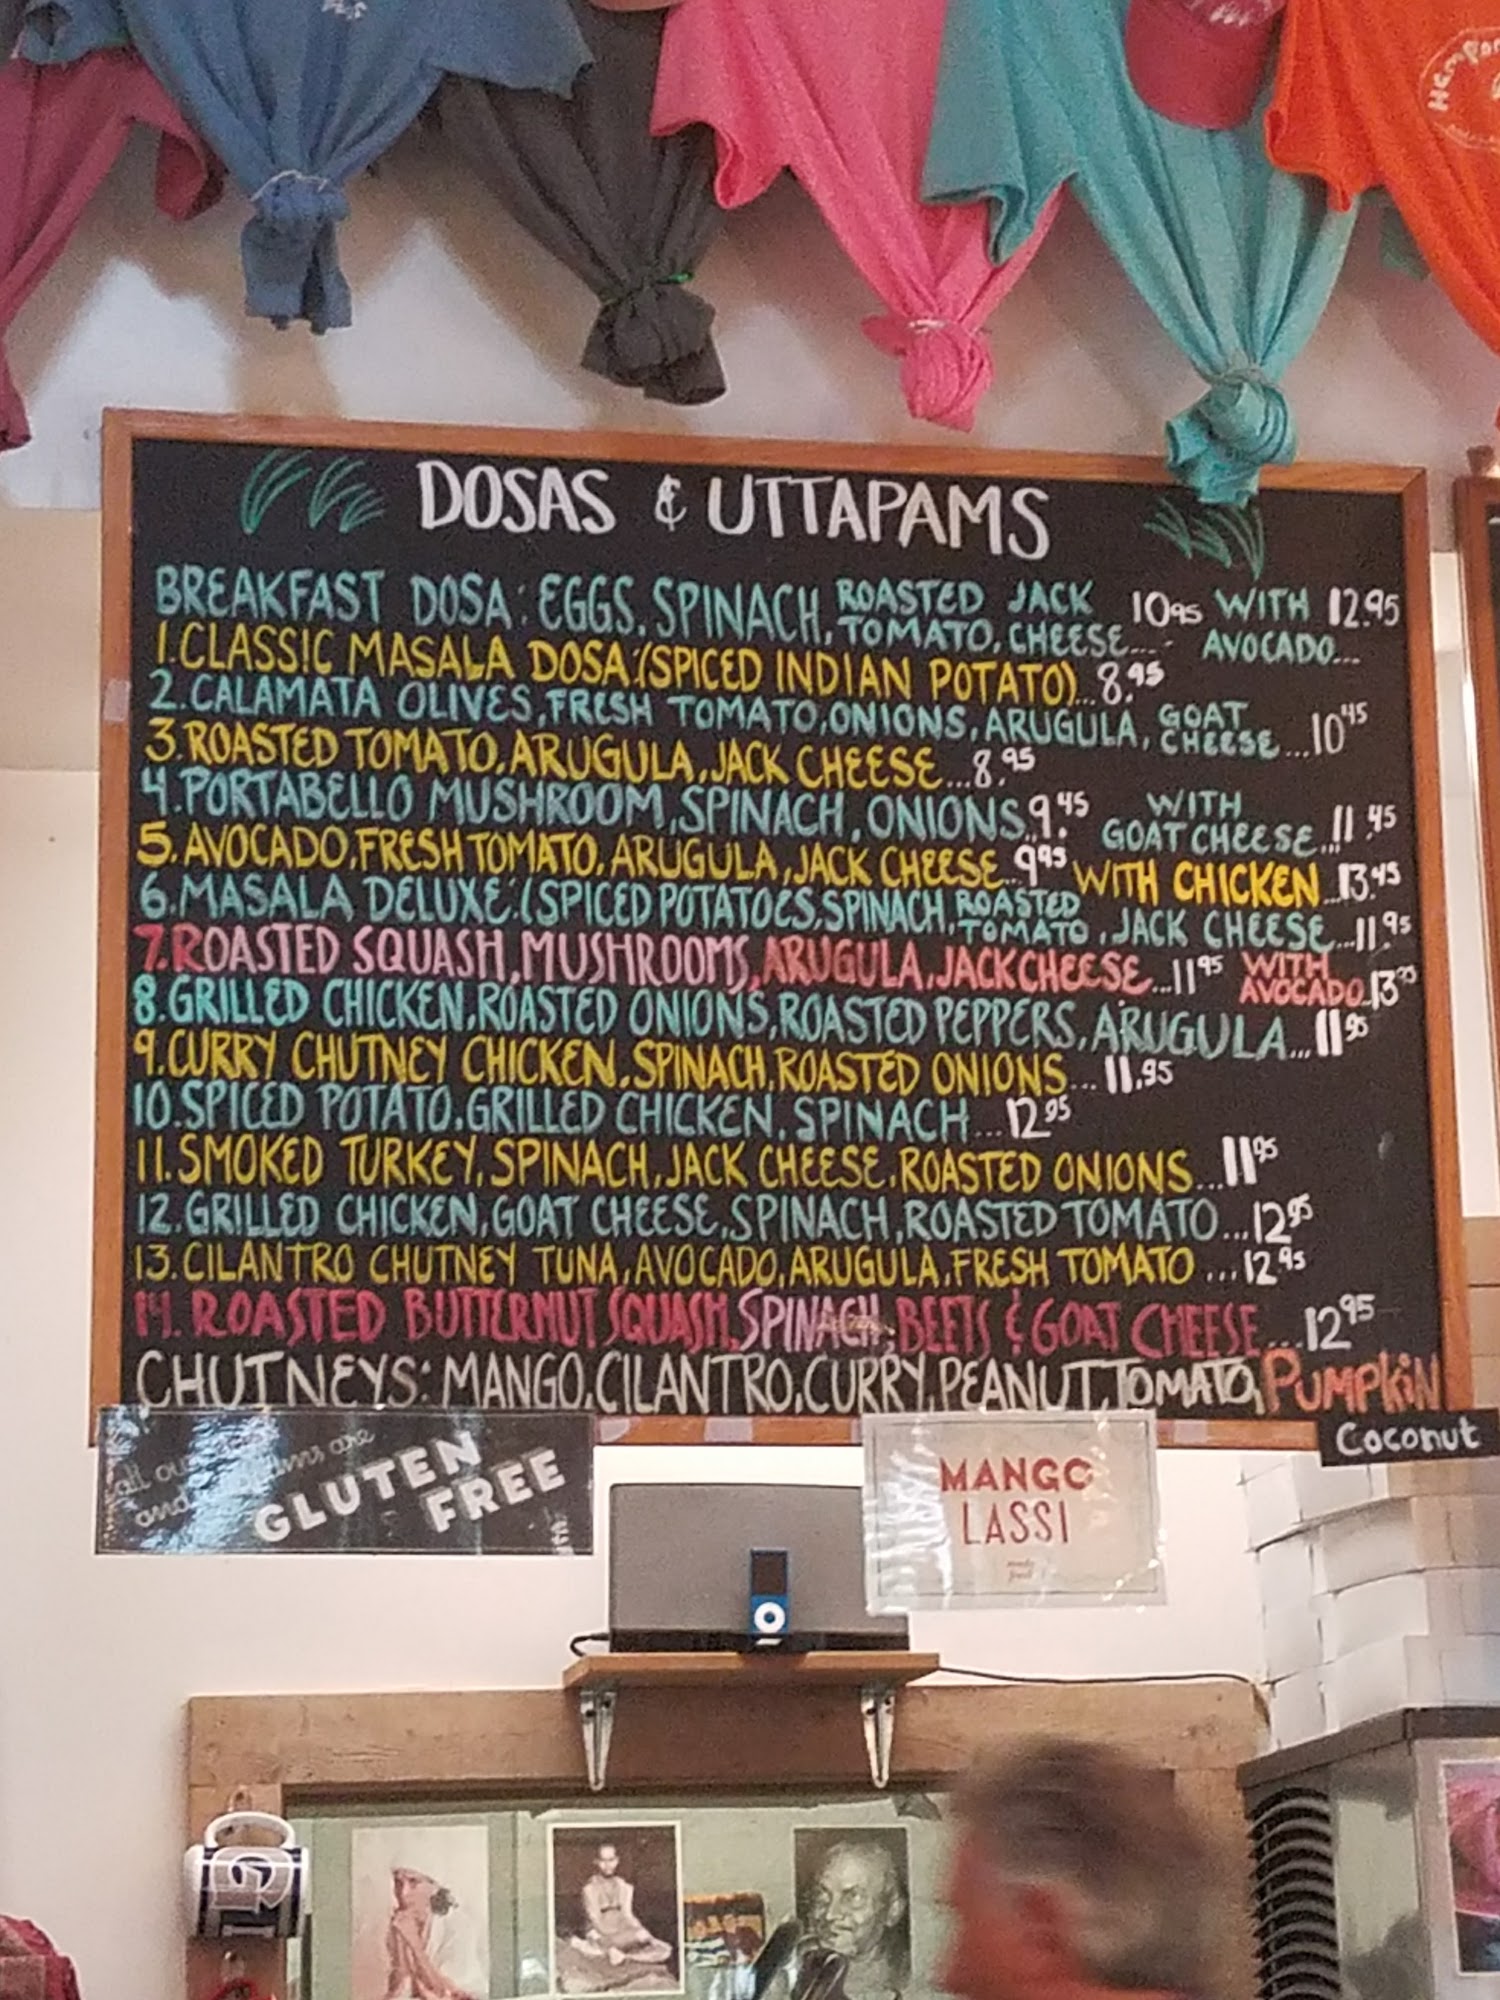 DOSAS & UTTAPAMS
BREAKFAST DOSA: EGGS, SPINACH, ROASTED JACK TOMATO, CHEESE.... 10.95 WITH AVOCADO... 12.95
1. CLASSIC MASALA DOSA: (SPICED INDIAN POTATO)...8.95
2. CALAMATA OLIVES, FRESH TOMATO, ONIONS, ARUGULA, GOAT CHEESE...10.45
3. ROASTED TOMATO, ARUGULA, JACK CHEESE...8.95
4. PORTABELLO MUSHROOM, SPINACH, ONIONS..9.45 WITH GOAT CHEESE...11.45
5. AVOCADO, FRESH TOMATO, ARUGULA, JACK CHEESE...9.95 WITH CHICKEN...13.45
6. MASALA DELUXE: (SPICED POTATOES, SPINACH, ROASTED TOMATO, JACK CHEESE...11.95
7. ROASTED SQUASH, MUSHROOMS, ARUGULA, JACK CHEESE...11.95 WITH AVOCADO..13
8. GRILLED CHICKEN, ROASTED ONIONS, ROASTED PEPPERS, ARUGULA...11.95
9. CURRY CHUTNEY CHICKEN, SPINACH, ROASTED ONIONS...11.95
10. SPICED POTATO, GRILLED CHICKEN, SPINACH...12.95
11. SMOKED TURKEY, SPINACH, JACK CHEESE, ROASTED ONIONS...11.95
12. GRILLED CHICKEN, GOAT CHEESE, SPINACH, ROASTED TOMATO...12.95
13. CILANTRO CHUTNEY TUNA, AVOCADO, ARUGULA, FRESH TOMATO...12.95
14. ROASTED BUTTERNUT SQUASH, SPINACH, BEETS & GOAT CHEESE...12.95
CHUTNEYS: MANGO, CILANTRO, CURRY, PEANUT, TOMATO, PUMPKIN
Coconut
all are
and
GLUTEN
FREE
MANGO
LASSI